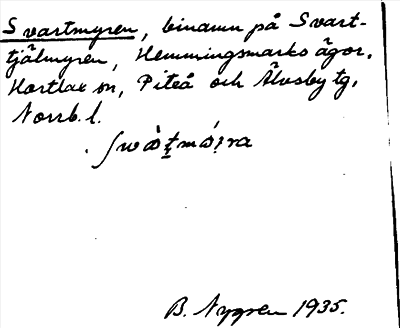 Svartmyren, binamn på Svart-
tjälmyren, Hemmingsmarks ägor,
Hortlax sn, Piteå och Älvsby tg,
Norrb. l.
B. Nygren 1935.